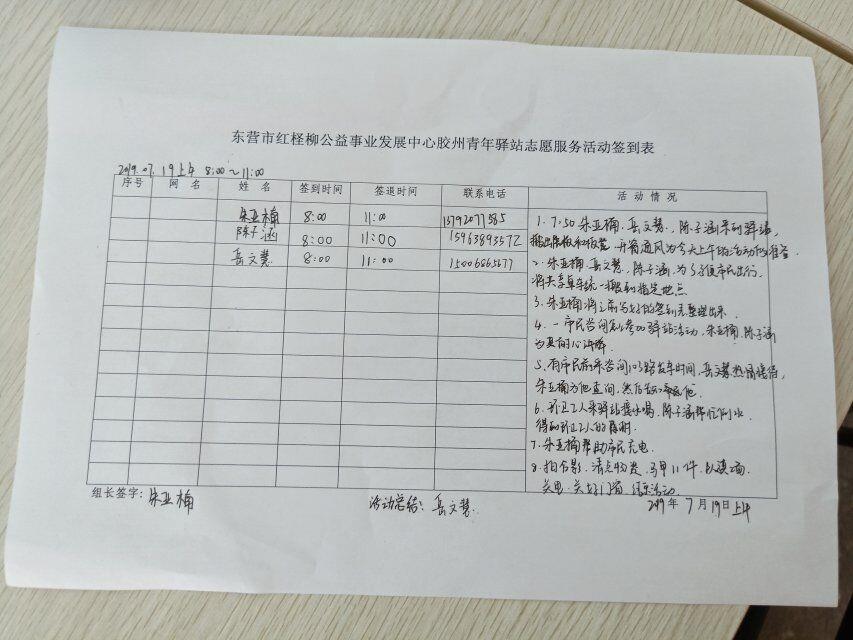 东营市红柽柳公益事业发展中心胶州青年驿站志愿服务活动签到表
2019.07.19上午 8:00~11:00
序号 网 名 姓 名 签到时间 签退时间 联系电话 活 动 情 况
朱亚楠 8:00 11:00 13792077585
陈子涵 8:00 11:00 15963893572
岳文慧 8:00 11:00 15006865677
1. 7:50 朱亚楠、岳文慧、陈子涵来到驿站,
开窗通风为今天上午的活动做准备.
2. 朱亚楠、岳文慧、陈子涵,为了方便市民出行,
将共享单车统一搬到指定地点
3. 朱亚楠将之前写好的签到表整理出来.
4. 一市民咨询怎么参加驿站活动,朱亚楠、陈子涵
为其耐心讲解
5. 有市民前来咨询103路发车时间,岳文慧热情接待,
朱亚楠为他查询,然后告诉他.
6. 环卫工人来驿站接水喝,陈子涵帮忙倒水.
得到环卫工人的
7. 朱亚楠帮助市民充电.
8. 拍合影,清点物资,马甲11件,
关电、关好门窗 结束活动.
组长签字:朱亚楠 活动总结:岳文慧.
2019年 7月19日上午